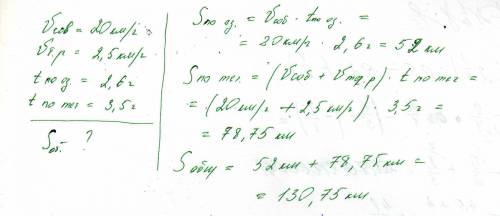 Vсоб = 20 км/г
Vт.р = 2,5 км/г
t по оз = 2,6 г
t по теч = 3,5 г
Sоб. ?
S по оз. = Vсоб · t по оз. =
= 20 км/г · 2,6 г = 52 км
S по теч. = (Vсоб + Vтр.р) · t по теч =
= (20 км/г + 2,5 км/г) · 3,5 г =
= 78,75 км
Sобщ = 52 км + 78,75 км =
= 130,75 км